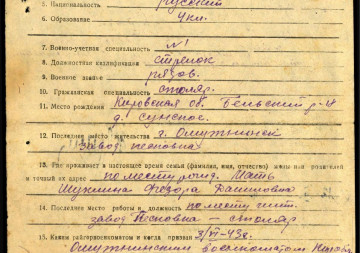 5. Национальность русский
6. Образование 4 кл.
7. Военно-учетная специальность №1
8. Должностная квалификация стрелок
9. Военное звание рядов.
10. Гражданская специальность столяр.
11. Место рождения Кировская об. Бельский р-н
д.
12. Последнее место жительства г. Омутнинск
завод песковка
13. Где проживает в настоящее время семья (фамилия, имя, отчество) жены или родителей
и точный их адрес по месту рожд. Мать
Шукшина Федора Даниловна
14. Последнее место работы и должность по месту жит.
завод Песковка – столяр
15. Каким райгорвоенкоматом и когда призван 3/VI-43г.
Омутнинским военкоматом